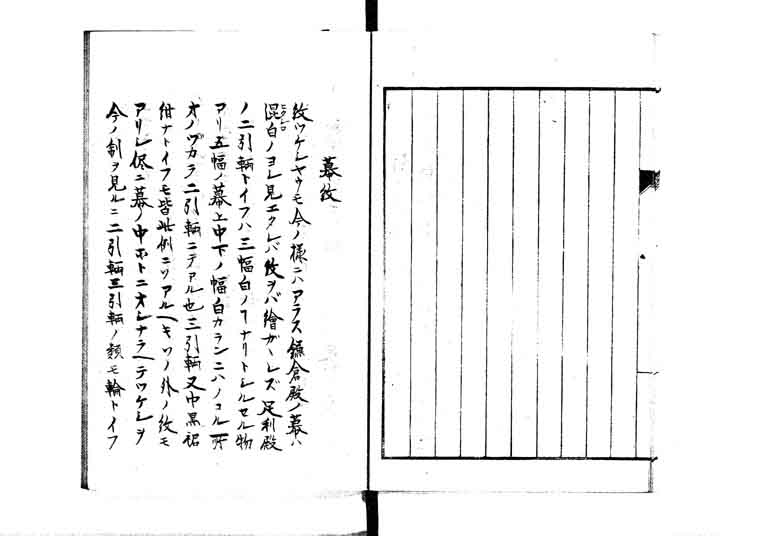 幕紋
紋ツケシヤウモ今ノ様ニハアラス鎌倉殿ノ幕ハ
混白ノヨシ見エタレバ紋ヲバ繪ガヽレズ足利殿
ノ二引輌トイフハ三幅白ノ
アリ五幅ノ幕上中下ノ幅白カランニハノコル所
オノヅカラ二引輌ニテアル也三引輌又中黒裾
付ナトイフモ皆此例ニソアルヘキソノ外ノ紋モ
アリシ侭ニ幕ノ中ホトニオシナラヘテツケシヲ
今ノ制ヲ見ルニ二引輌三引輌ノ類モ輪トイフ